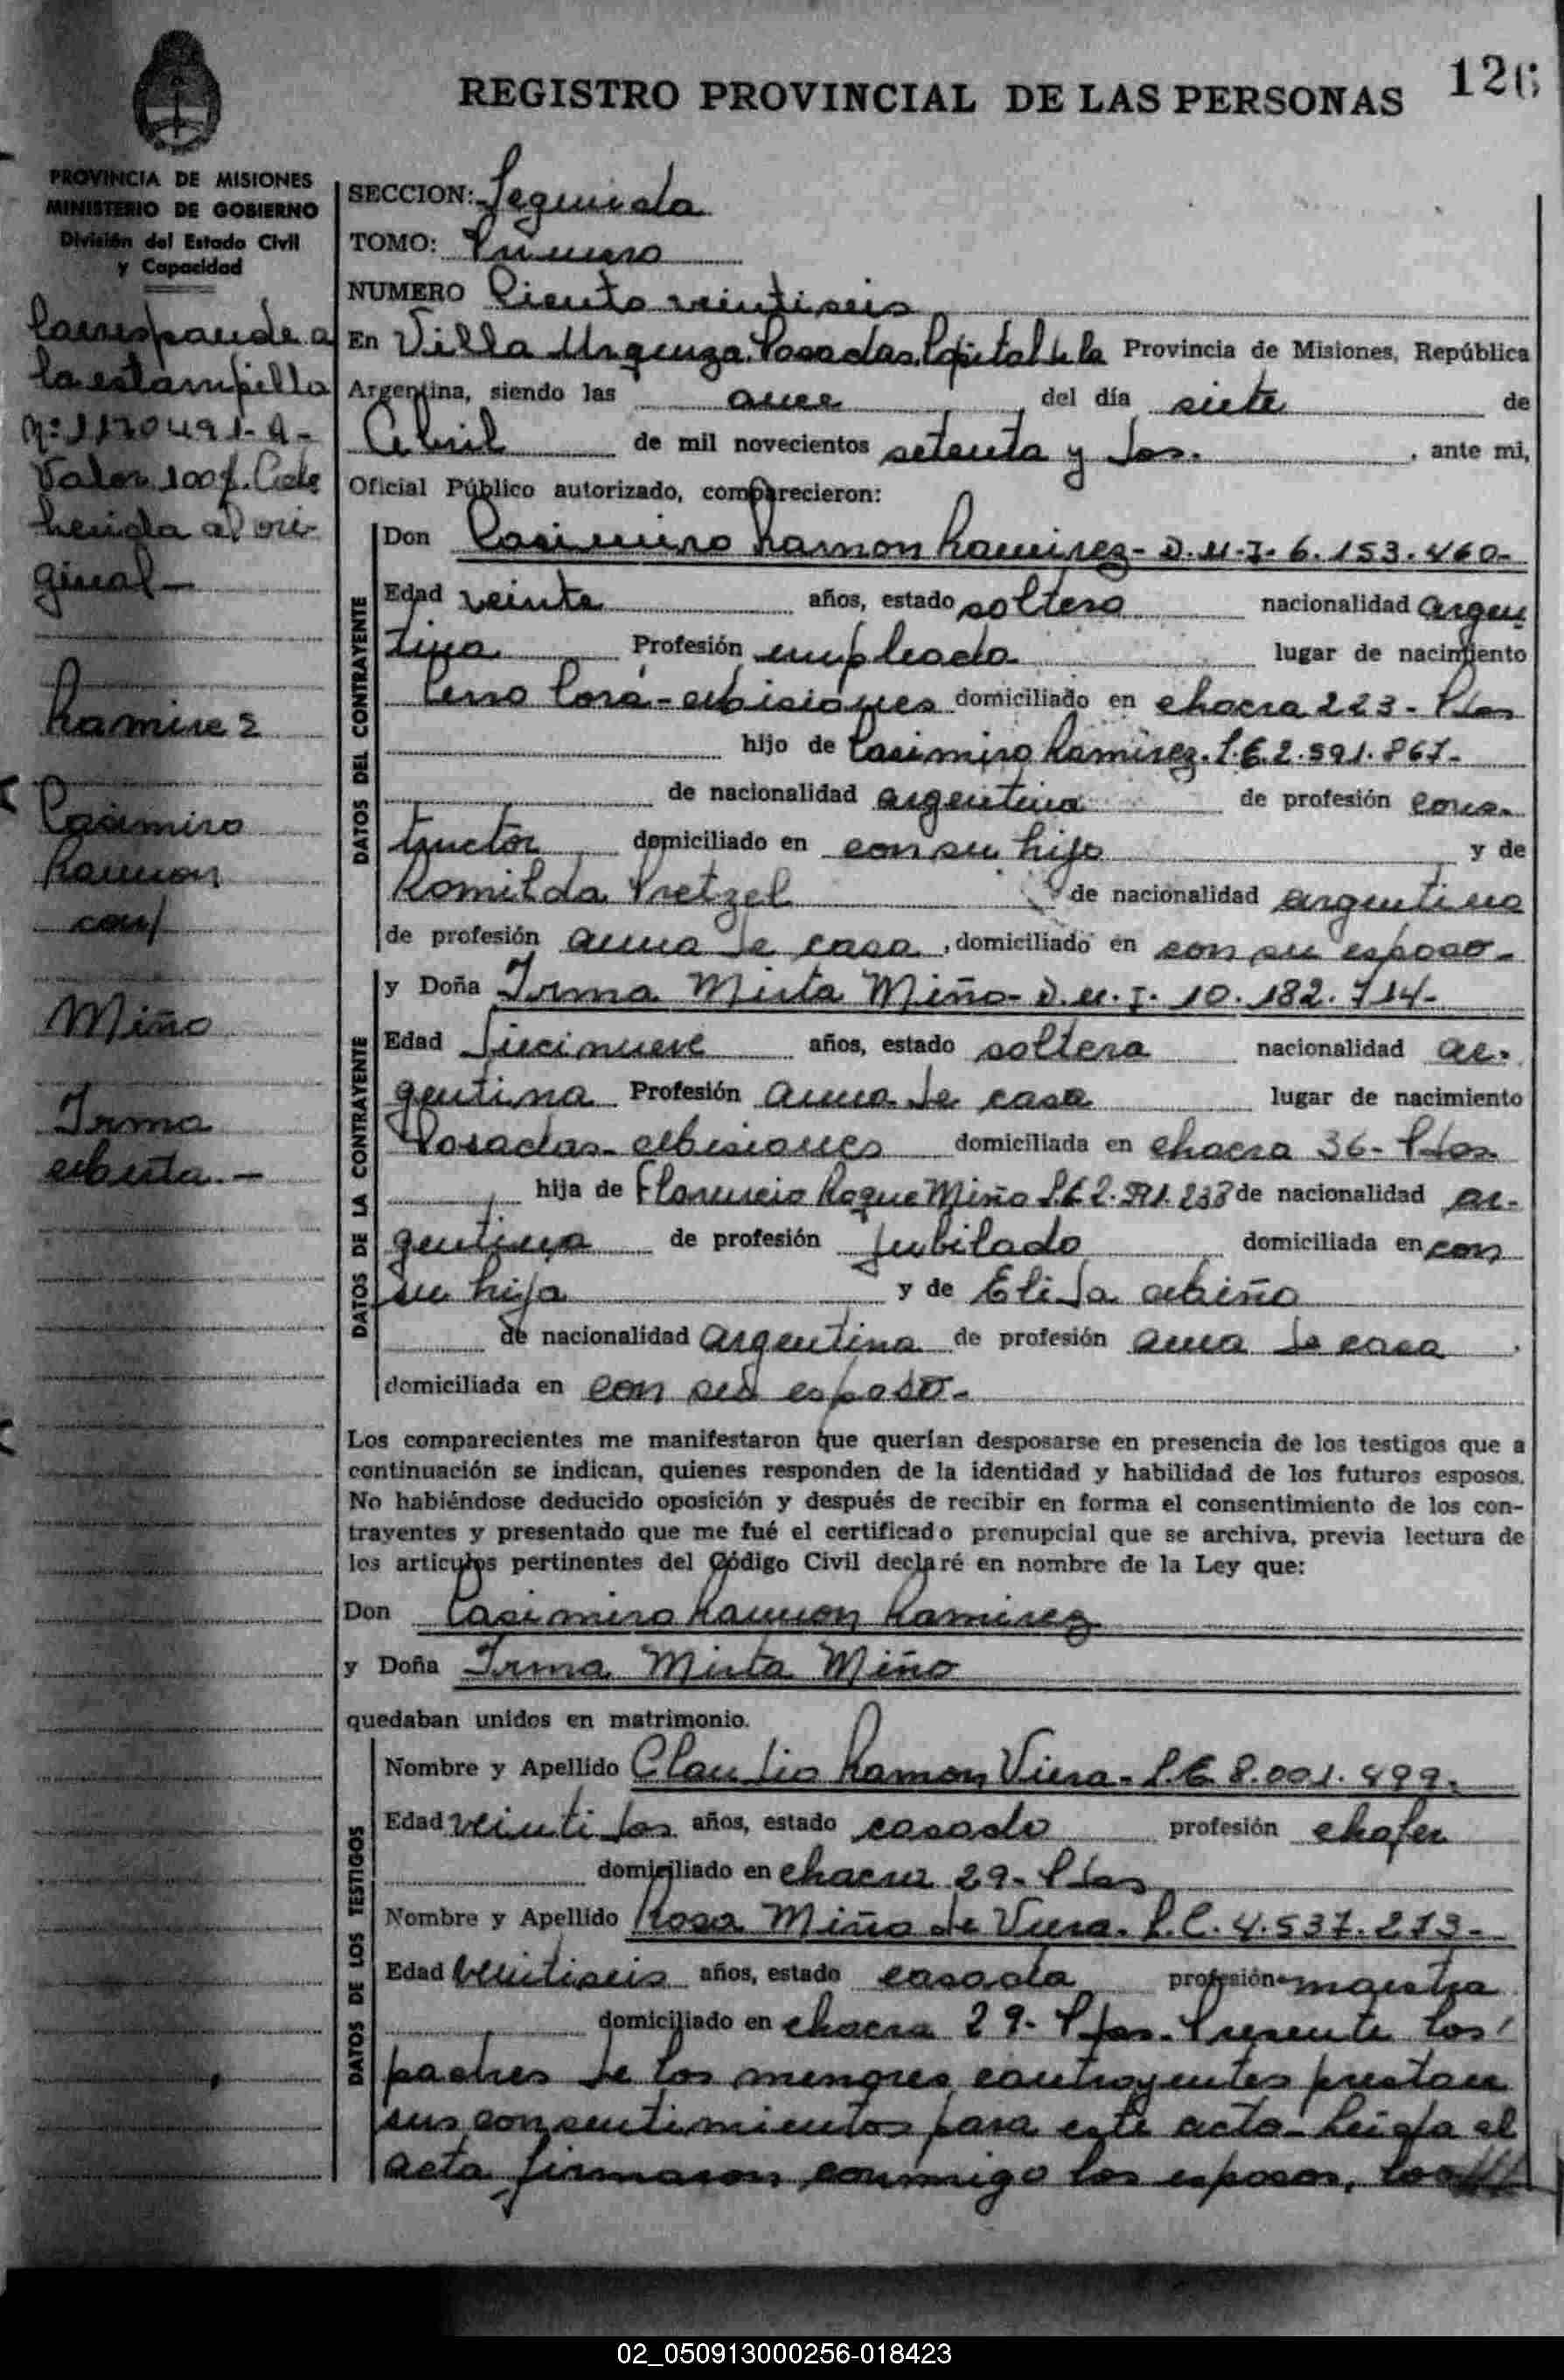 126
REGISTRO PROVINCIAL DE LAS PERSONAS
PROVINCIA DE MISIONES
MINISTERIO DE GOBIERNO
División del Estado Civil
y Capacidad
Corresponde a
la estampilla
Nº: 1170491-A-
Valor 100 $.
herida al ori-
ginal-
Ramirez
Casimiro
Ramon
con/
Miño
Irma
Mirta.-
SECCION: Segunda
TOMO: Primero
NUMERO Ciento veintiseis
En Villa Urquiza. Posadas Capital de la Provincia de Misiones, República
Argentina, siendo las once del día siete de
Abril de mil novecientos setenta y dos. , ante mi,
Oficial Público autorizado, comparecieron:
DATOS DEL CONTRAYENTE
Don Casimiro Ramon Ramirez- D.N.I. 6.153.460-
Edad veinte años, estado soltero nacionalidad argen
tina Profesión empleado lugar de nacimiento
Cerro Corá-Misiones domiciliado en chacra 223- Pdas
hijo de Casimiro Ramirez. L.E. 2.591.867-
de nacionalidad argentina de profesión cons-
tructor domiciliado en con su hijo y de
Romilda Pretzel de nacionalidad argentina
de profesión ama de casa , domiciliado en con su esposo-
DATOS DE LA CONTRAYENTE
y Doña Irma Mirta Miño- D.N.I. 10.182.714-
Edad diecinueve años, estado soltera nacionalidad ar-
gentina Profesión ama de casa lugar de nacimiento
Posadas-Misiones domiciliada en chacra 36- Pdas
hija de Florencio Roque Miño L.E 2. 238 de nacionalidad ar-
gentina de profesión jubilado domiciliada en con
su hija y de Elida Miño
de nacionalidad argentina de profesión ama de casa .
domiciliada en con su esposo-
Los comparecientes me manifestaron que querían desposarse en presencia de los testigos que a
continuación se indican, quienes responden de la identidad y habilidad de los futuros esposos.
No habiéndose deducido oposición y después de recibir en forma el consentimiento de los con-
trayentes y presentado que me fué el certificado prenupcial que se archiva, previa lectura de
los artículos pertinentes del Código Civil declaré en nombre de la Ley que:
Don Casimiro Ramon Ramirez
y Doña Irma Mirta Miño
quedaban unidos en matrimonio.
DATOS DE LOS TESTIGOS
Nombre y Apellido Claudio Ramon Viera- L.E 8.001.499-
Edad veintidos años, estado casado profesión chofer
domiciliado en chacra 29- Pdas
Nombre y Apellido Rosa Miño de Viera. L.C. 4.537.273-
Edad veintiseis años, estado casada profesión maestra
domiciliado en chacra 29- Pdas. Presente los
padres de los menores contrayentes prestan
sus consentimientos para este acto- Leida el
acta firmaron conmigo los esposos, los
02_050913000256-018423